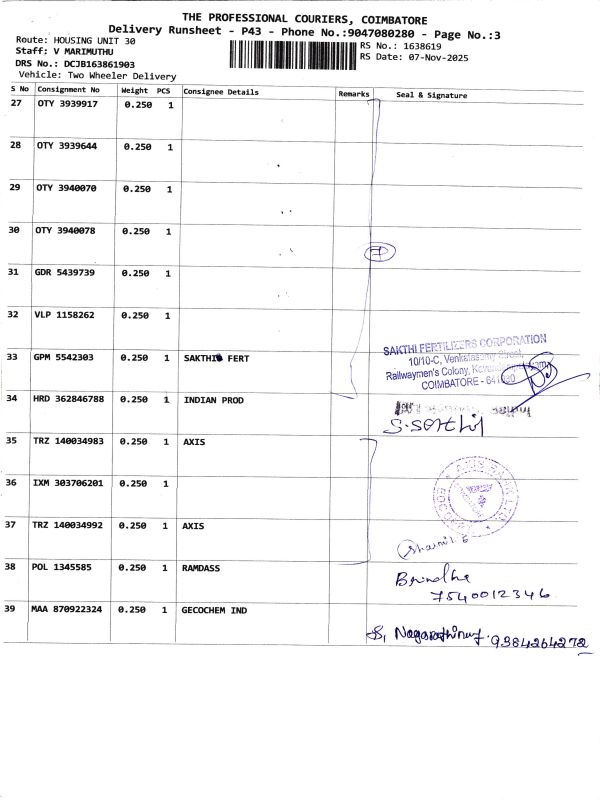 THE PROFESSIONAL COURIERS, COIMBATORE
Delivery Runsheet - P43 - Phone No.:9047080280 - Page No.:3
Route: HOUSING UNIT 30
RS No.: 1638619
Staff: V MARIMUTHU
RS Date: 07-Nov-2025
DRS No.: DCJB163861903
Vehicle: Two Wheeler Delivery
S No Consignment No Weight PCS Consignee Details Remarks Seal & Signature
27 OTY 3939917 0.250 1
28 OTY 3939644 0.250 1
29 OTY 3940070 0.250 1
30 OTY 3940078 0.250 1
7
31 GDR 5439739 0.250 1
32 VLP 1158262 0.250 1
SAKTHI FERTILIZERS CORPORATION
33 GPM 5542303 0.250 1 SAKTHI FERT
10/10-C, Venkatasamy Street,
Railwaymen's Colony,
COIMBATORE -
34 HRD 362846788 0.250 1 INDIAN PROD
35 TRZ 140034983 0.250 1 AXIS
AXIS BANK LTD
36 IXM 303706201 0.250 1
37 TRZ 140034992 0.250 1 AXIS
38 POL 1345585 0.250 1 RAMDASS
Brindha
7540012346
39 MAA 870922324 0.250 1 GECOCHEM IND
9384264272